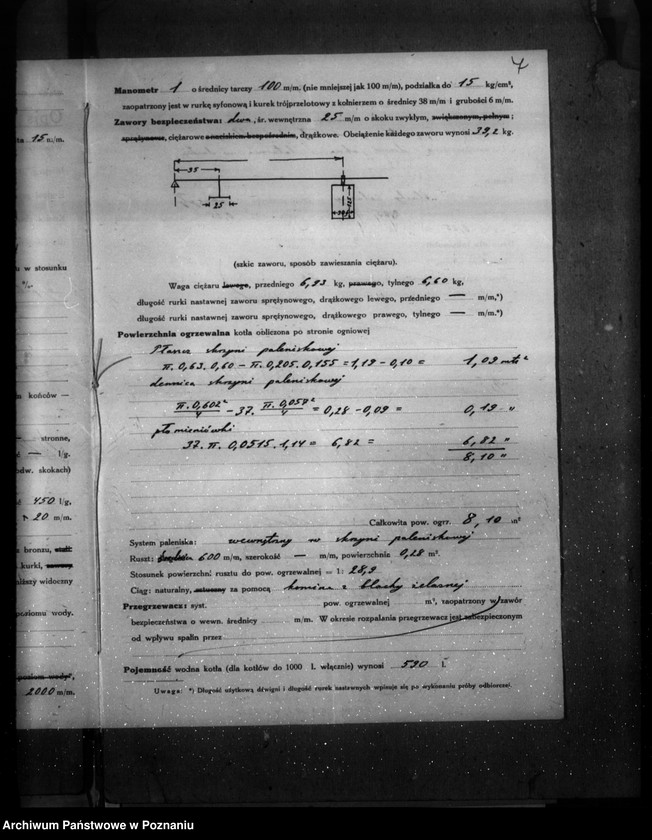 4
Manometr 1 o średnicy tarczy 100 m/m. (nie mniejszej jak 100 m/m), podziałka do 15 kg/cm²,
zaopatrzony jest w rurkę syfonową i kurek trójprzelotowy z kołnierzem o średnicy 38 m/m i grubości 6 m/m.
Zawory bezpieczeństwa: dwa, śr. wewnętrzna 25 m/m o skoku zwykłym, zwiększonym, pełnym;
sprężynowe, ciężarowe o nacisku bezpośrednim, drążkowe. Obciążenie każdego zaworu wynosi 39,2 kg.
35
25
(szkic zaworu, sposób zawieszania ciężaru).
Waga ciężaru lewego, przedniego 6,93 kg, prawego, tylnego 6,60 kg,
długość rurki nastawnej zaworu sprężynowego, drążkowego lewego, przedniego — m/m,*)
długość rurki nastawnej zaworu sprężynowego, drążkowego prawego, tylnego — m/m.*)
Powierzchnia ogrzewalna kotła obliczona po stronie ogniowej
Płaszcz skrzyni paleniskowej
π. 0,63. 0,60 – π. 0,205. 0,155 = 1,19 – 0,10 = 1,09 mtr²
dennica skrzyni paleniskowej
π. 0,602²/4 – 37. π. 0,057²/4 = 0,28 – 0,09 = 0,19 "
płomieniówki
37. π. 0,0515. 1,14 = 6,82 = 6,82 "
8,10 "
Całkowita pow. ogrz. 8,10 m²
System paleniska: wewnętrzny w skrzyni paleniskowej
Ruszt: średnica 600 m/m, szerokość — m/m, powierzchnia 0,28 m².
Stosunek powierzchni rusztu do pow. ogrzewalnej = 1: 28,9
Ciąg: naturalny, sztuczny za pomocą komina z blachy żelaznej
Przegrzewacz: syst. pow. ogrzewalnej m², zaopatrzony w zawór
bezpieczeństwa o wewn. średnicy m/m. W okresie rozpalania przegrzewacz jest zabezpieczonym
od wpływu spalin przez
Pojemność wodna kotła (dla kotłów do 1000 l. włącznie) wynosi 520 l.
Uwaga: *) Długość użytkową dźwigni i długość rurek nastawnych wpisuje się po wykonaniu próby odbiorczej.
ta 15 m/m.
u w stosunku
u końców —
— stronne,
— l/g.
odw. skokach)
450 l/g.
20 m/m.
z bronzu,
kurki,
niższy widoczny
poziomu wody.
poziom wody",
2000 m/m.
Archiwum Państwowe w Poznaniu